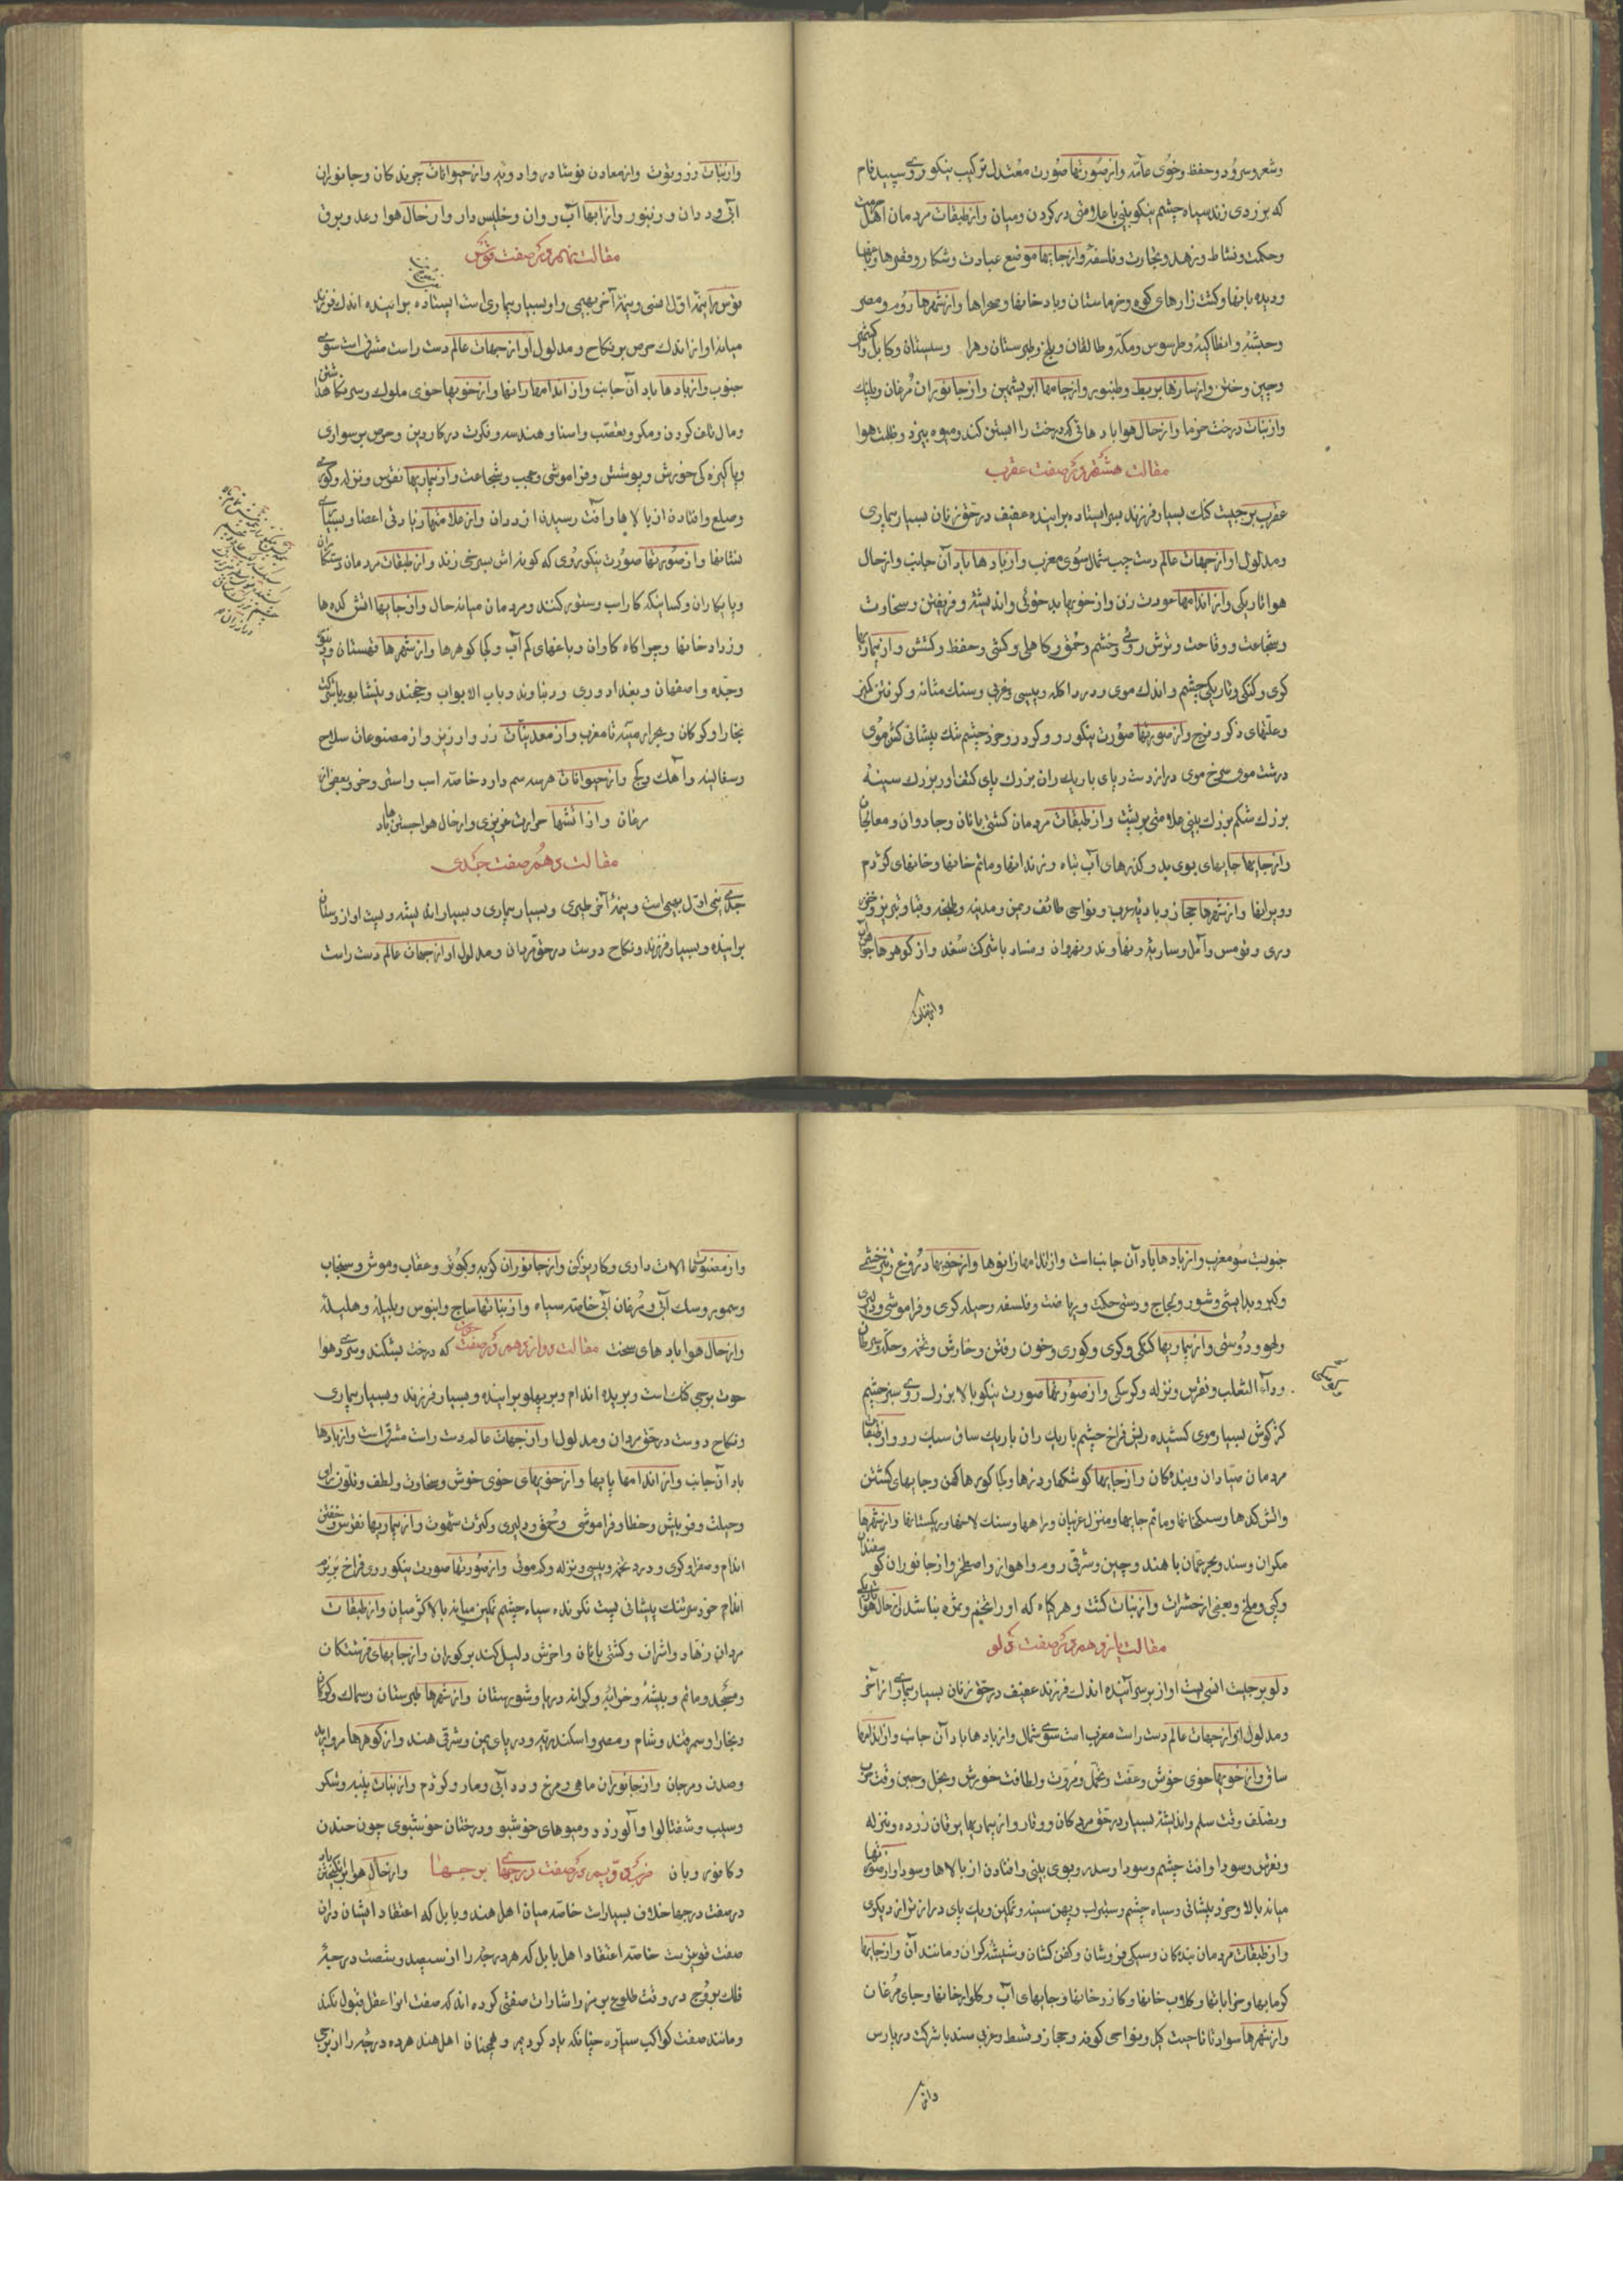 وشعر وسرود وحفظ وخوی عامه وازصورتها صورت معتدل ترکیب نیکوروی سپیدفام
که بزردی زند سیاه چشم نیکو بینی با علامتی در کردن ومیان وازطبقات مردمان اهل
وحکمت ونشاط وزهد وتجارت وفلسفه وازجایها موضع عبادت وشکار وقصرها
ودیده بانها وکشت زارهای کوه وخرماستان وبادخانها وصحراها وازشهرها روم ومصر
وحبشه وانطاکیه وطرسوس ومکه وطالقان وبلخ وطبرستان وهرا وسیستان وکابل
وچین وختن وازسازها بربط وطنبور وازجامها ابریشمین وازجانوران مرغان وپلنک
وازنبات درخت خرما وازحال هوا بادهائی که درخت را ابستن کند ومیوه بپزد وظلمت هوا
مقالت هشتم در صفت عقرب
عقرب برجیست کنک بسیار فرزند بسر ایستاده براینده عفیف درحق زنان بسیار بیماری
ومدلول او ازجهات عالم دست چپ شمال سوی مغرب وازبادها باد آن جانب وازحال
هوا تاریکی وازاندامها عورت زن وازخویها بدخوئی واندیشه وفریفتن وسخاوت
وشجاعت ووقاحت وترش روئی وخشم وحمق وکاهلی وکشی وحفظ وکشتن وازبیماریها
کری وکنکی وتاریکی چشم واندک موی ودرد اکله وپیسی وغربی وسنک مثانه وکرفتن
وعلتهای ذکر وفرج وازصورتها صورت نیکو رو وکرد رو وخرد چشم تنک پیشانی کش موی
درشت موی سرخ موی درازدست وپای باریک ران بزرک پای کتف اور بزرک سینه
بزرک شکم بزرک بینی علامتی بر پشت وازطبقات مردمان کشتی بانان وجادوان ومعالجان
وازجایها جایهای بوی بد وکذرهای آب تباه وزندانها وماتم خانها وخانهای کژدم
وویرانها وازشهرها حجاز وبادیه عرب ونواحی طائف ویمن ومدینه وطنجه وقبا وتبریز
وری وقومس وآمل وساریه ونهاوند ونهروان وفساد باشرکت سغد واز کوهرها
وازنبات
وازنبات رز وتوت وازمعادن نوشادر وادویه وازحیوانات چرندکان وجانوران
آبی وددان وزنبور وازابها آب روان وخلیس دار وازحال هوا رعد وبرق
مقالت نهم در صفت قوس
قوس را نیمه اول انسی ونیمه آخر بهیمی واو بسیار بیماری است ایستاده براینده اندک فرزند
میانه اواز اندک حرص برنکاح ومدلول او ازجهات عالم دست راست مشرق است سوی
جنوب وازبادها باد آن جانب وازاندامها رانها وازخویها خوی ملوک وسر نکاه داشتن
ومال تلف کردن ومکر وتعصب واستا وهندسه وفکرت درکار دین وحرص بر سواری
وپاکیزه کی خورش وپوشش وفراموشی وعجب وشجاعت وازبیماریها نقرس ونزله وکوری
وصلع وافتادن از بالاها وآفت رسیدن از ددان وازعلامتها زیادتی اعضا وبسیاری
نشانها وازصورتها صورت نیکوروی که کونه اش بسرخی زند وازطبقات مردمان
وپایکاران وکسانیکه کار اسب وستور کنند ومردمان میانه حال وازجایها اتش کده ها
وزرادخانها وچراکاه کاوان وباغهای کم آب وکجا کوهرها وازشهرها قهستان
وجده واصفهان وبغداد وری ودنباوند وباب الابواب وخجند ونیشابور باشرکت
بخارا وکرکان وبحر ارمینه تا مغرب وازمعدنیات زر وارزیز وازمصنوعات سلاح
وسفالینه وآهک وکچ وازحیوانات هرسه سم دارد خاصه اسب واستر وخر وبعضی از
مرغان وازاتشها حرارت غریزی وازحال هوا جستن بادها
مقالت دهم در صفت جدی
جدی نیمه اول بهیمی است ونیمه آخر طیری وبسیار بیماری وبسیار اندیشه وپست آواز
براینده وبسیار فرزند ونکاح دوست درحق مردان ومدلول او ازجهات عالم دست راست
جنوبست سوی مغرب وازبادها باد آن جانب است وازاندامها زانوها وازخویها دروغ وتیزخشمی
وکبر وبداندیشی وشور ولجاج ودوستی حکمت وریاضت وفلسفه وحیله کری وفراموشی ودلیری
ولهو ودوستی وازبیماریها کنکی وکری وکوری وخون رفتن وخارش وتخمه وحکه
وداء الثعلب ونقرس ونزله وکرسکی وازصورتها صورت نیکو بالا بزرک روی سبز چشم
کژ کوش بسیار موی کشیده ریش فراخ چشم باریک ران باریک ساق سبک رو وازطبقات
مردمان صیادان وبندکان وازجایها کوشکها ودزها وکجا کوره ها کهن وجایهای کشتن
واتش کدها وسکخانها وماتم جایها ومنزل غریبان وراهها وسنک لاخها وریکستانها وازشهرها
مکران وسند وبحر عمان با هند وچین وشرقی روم واهواز واصطخر وازجانوران کوسفندان
وکپی وملخ وبعضی ازحشرات وازنبات کشت وهرکیاه که اورا تخم وثمره نباشد ازحال هوا
مقالت یازدهم در صفت دلو
دلو برجیست انسی پست آواز بر سر آینده اندک فرزند عفیف درحق زنان بسیار بیماری
ومدلول او ازجهات عالم دست راست مغرب است سوی شمال وازبادها باد آن جانب وازاندامها
ساق وازخویها خوی خوش وعفت وتجمل ومروت ولطافت خورش وبخل وجبن وقت حرب
وتصلف وقت سلم واندیشه بسیار درحق مردکان ووقار وازبیماریها یرقان زرد ونزله
ونقرس وسودا وآفت چشم وسودا وسدر وبوی بینی وافتادن از بالاها وسودا وازصورتها
میانه بالا وخرد پیشانی وسیاه چشم وسطبر لب وپهن سینه ونمکین ویک پای دراز تر از دیکری
وازطبقات مردمان بندکان وسیکی فروشان وکفن کشان وشیشه کران ومانند آن وازجایها
کرمابها وخراباتها وکلاب خانها وکازرخانها وجایهای آب وکلوارخانها وجای مرغان
وازشهرها سواد تا ناحیت کبل ونواحی کوفه وحجاز وقبط وغربی سند با شرکت درپارس
واز
وازمصنوعات آلات داری وکاریزکن وازجانوران کربه وکبوتر وعقاب وموش وسنجاب
وسمور وسک آبی ومرغان آبی خاصه سیاه وازنباتها ساج وابنوس وبلیله وهلیله
وازحال هوا بادهای سخت مقالت دوازدهم در صفت حوت که درخت بشکند وسردی هوا
حوت برجی کنک است وبریده اندام وبر پهلو براینده وبسیار فرزند وبسیار بیماری
ونکاح دوست درحق مردان ومدلول او ازجهات عالم دست راست مشرق است وازبادها
باد آن جانب وازاندامها پایها وازخویهای خوی خوش وسخاوت ولطف وتلون رای
وحیلت وفریش وخطا وفراموشی وحمق ودلیری وکثرت شهوت وازبیماریها نقرس
اندام وصفرا وکری ودرد تخمه وپیسی ونزله وکدموئی وازصورتها صورت نیکوروی فراخ بر نرم
اندام خرد سر تنک پیشانی پست نکرنده سیاه چشم نمکین میانه بالا کژ میان وازطبقات
مردان زهاد واشراف وکشتی بانان واخرش دلیل کند بر کوران وازجایهای فرشتکان
ومسجد وماتم وبیشه وخرابه وکرانه دریا وشورستان وازشهرها طبرستان وسماک وکرکان
وبخارا وسمرقند وشام ومصر واسکندریه ودریای یمن وشرقی هند وازکوهرها مروارید
وصدف ومرجان وازجانوران ماهی ومرغ ودد آبی ومار وکژدم وازنبات پنبه وشکر
وسیب وشفتالو وآلو زرد ومیوهای خوشبو ودرختان خوشبوی چون صندل
وکافور وبان ضرب دویم در صفت درجهای برجها وازحال هوا
درصفت درجها خلاف بسیار است خاصه میان اهل هند وبابل که اعتقاد ایشان دران
صفت قویترست خاصه اعتقاد اهل بابل که هر درجه را از سیصد وشصت درجه
فلک بروج در وقت طلوع برمز واشارات صفتی کرده اند که صفت انرا عقل قبول نکند
ومانند صفت کواکب سیاره چنانکه یاد کردیم وهمچنان اهل هند هر ده درجه را از برجی